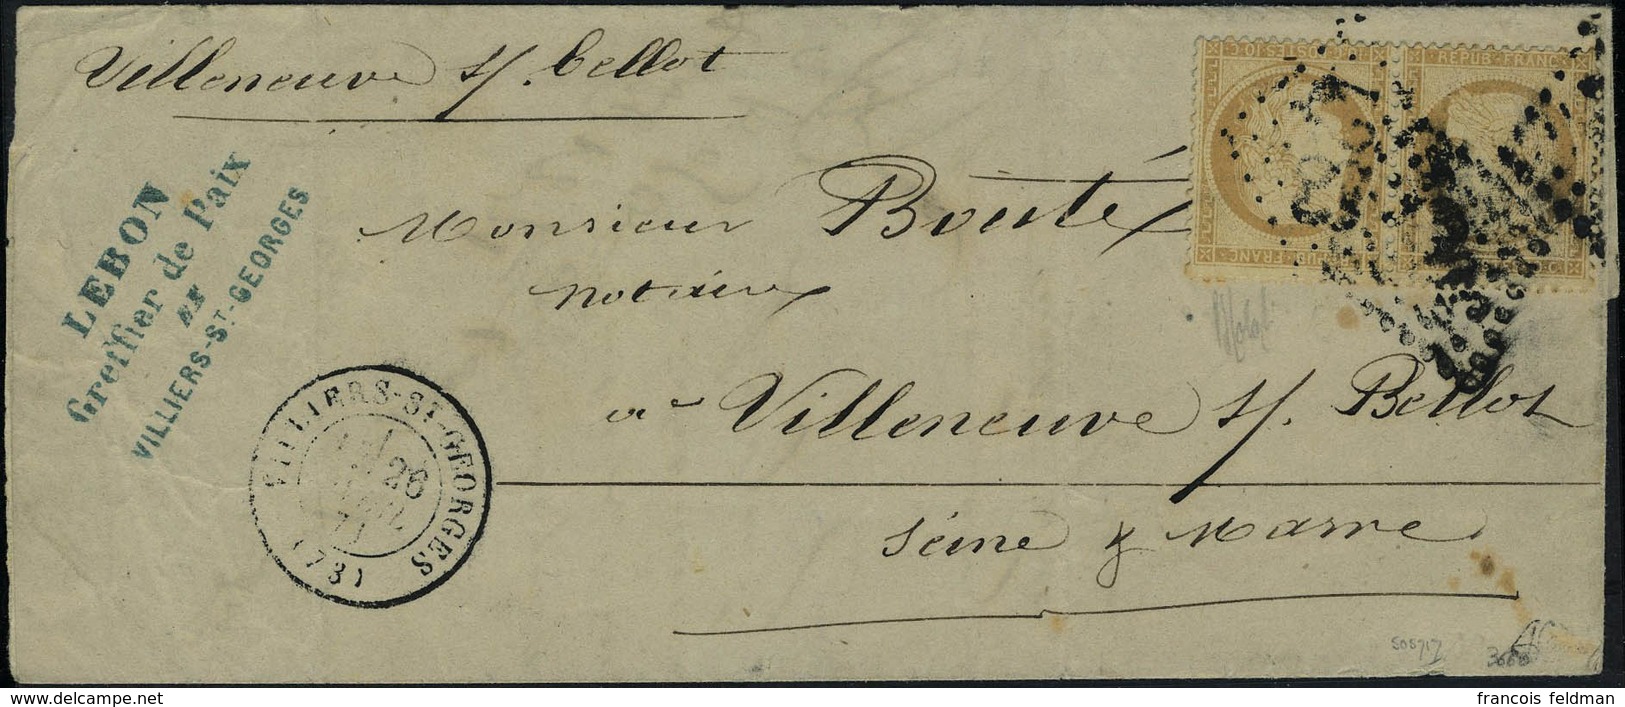 Villeneuve s/. bellot
LEBON
Greffier de Paix
VILLIERS-ST-GEORGES
Monsieur Bouté
notaire
à Villeneuve s/. Bellot
Seine & Marne
VILLIERS-ST-GEORGES
26
(73)
POSTES 10 C
FRANC
REPUB FRANC
505717
francois feldman